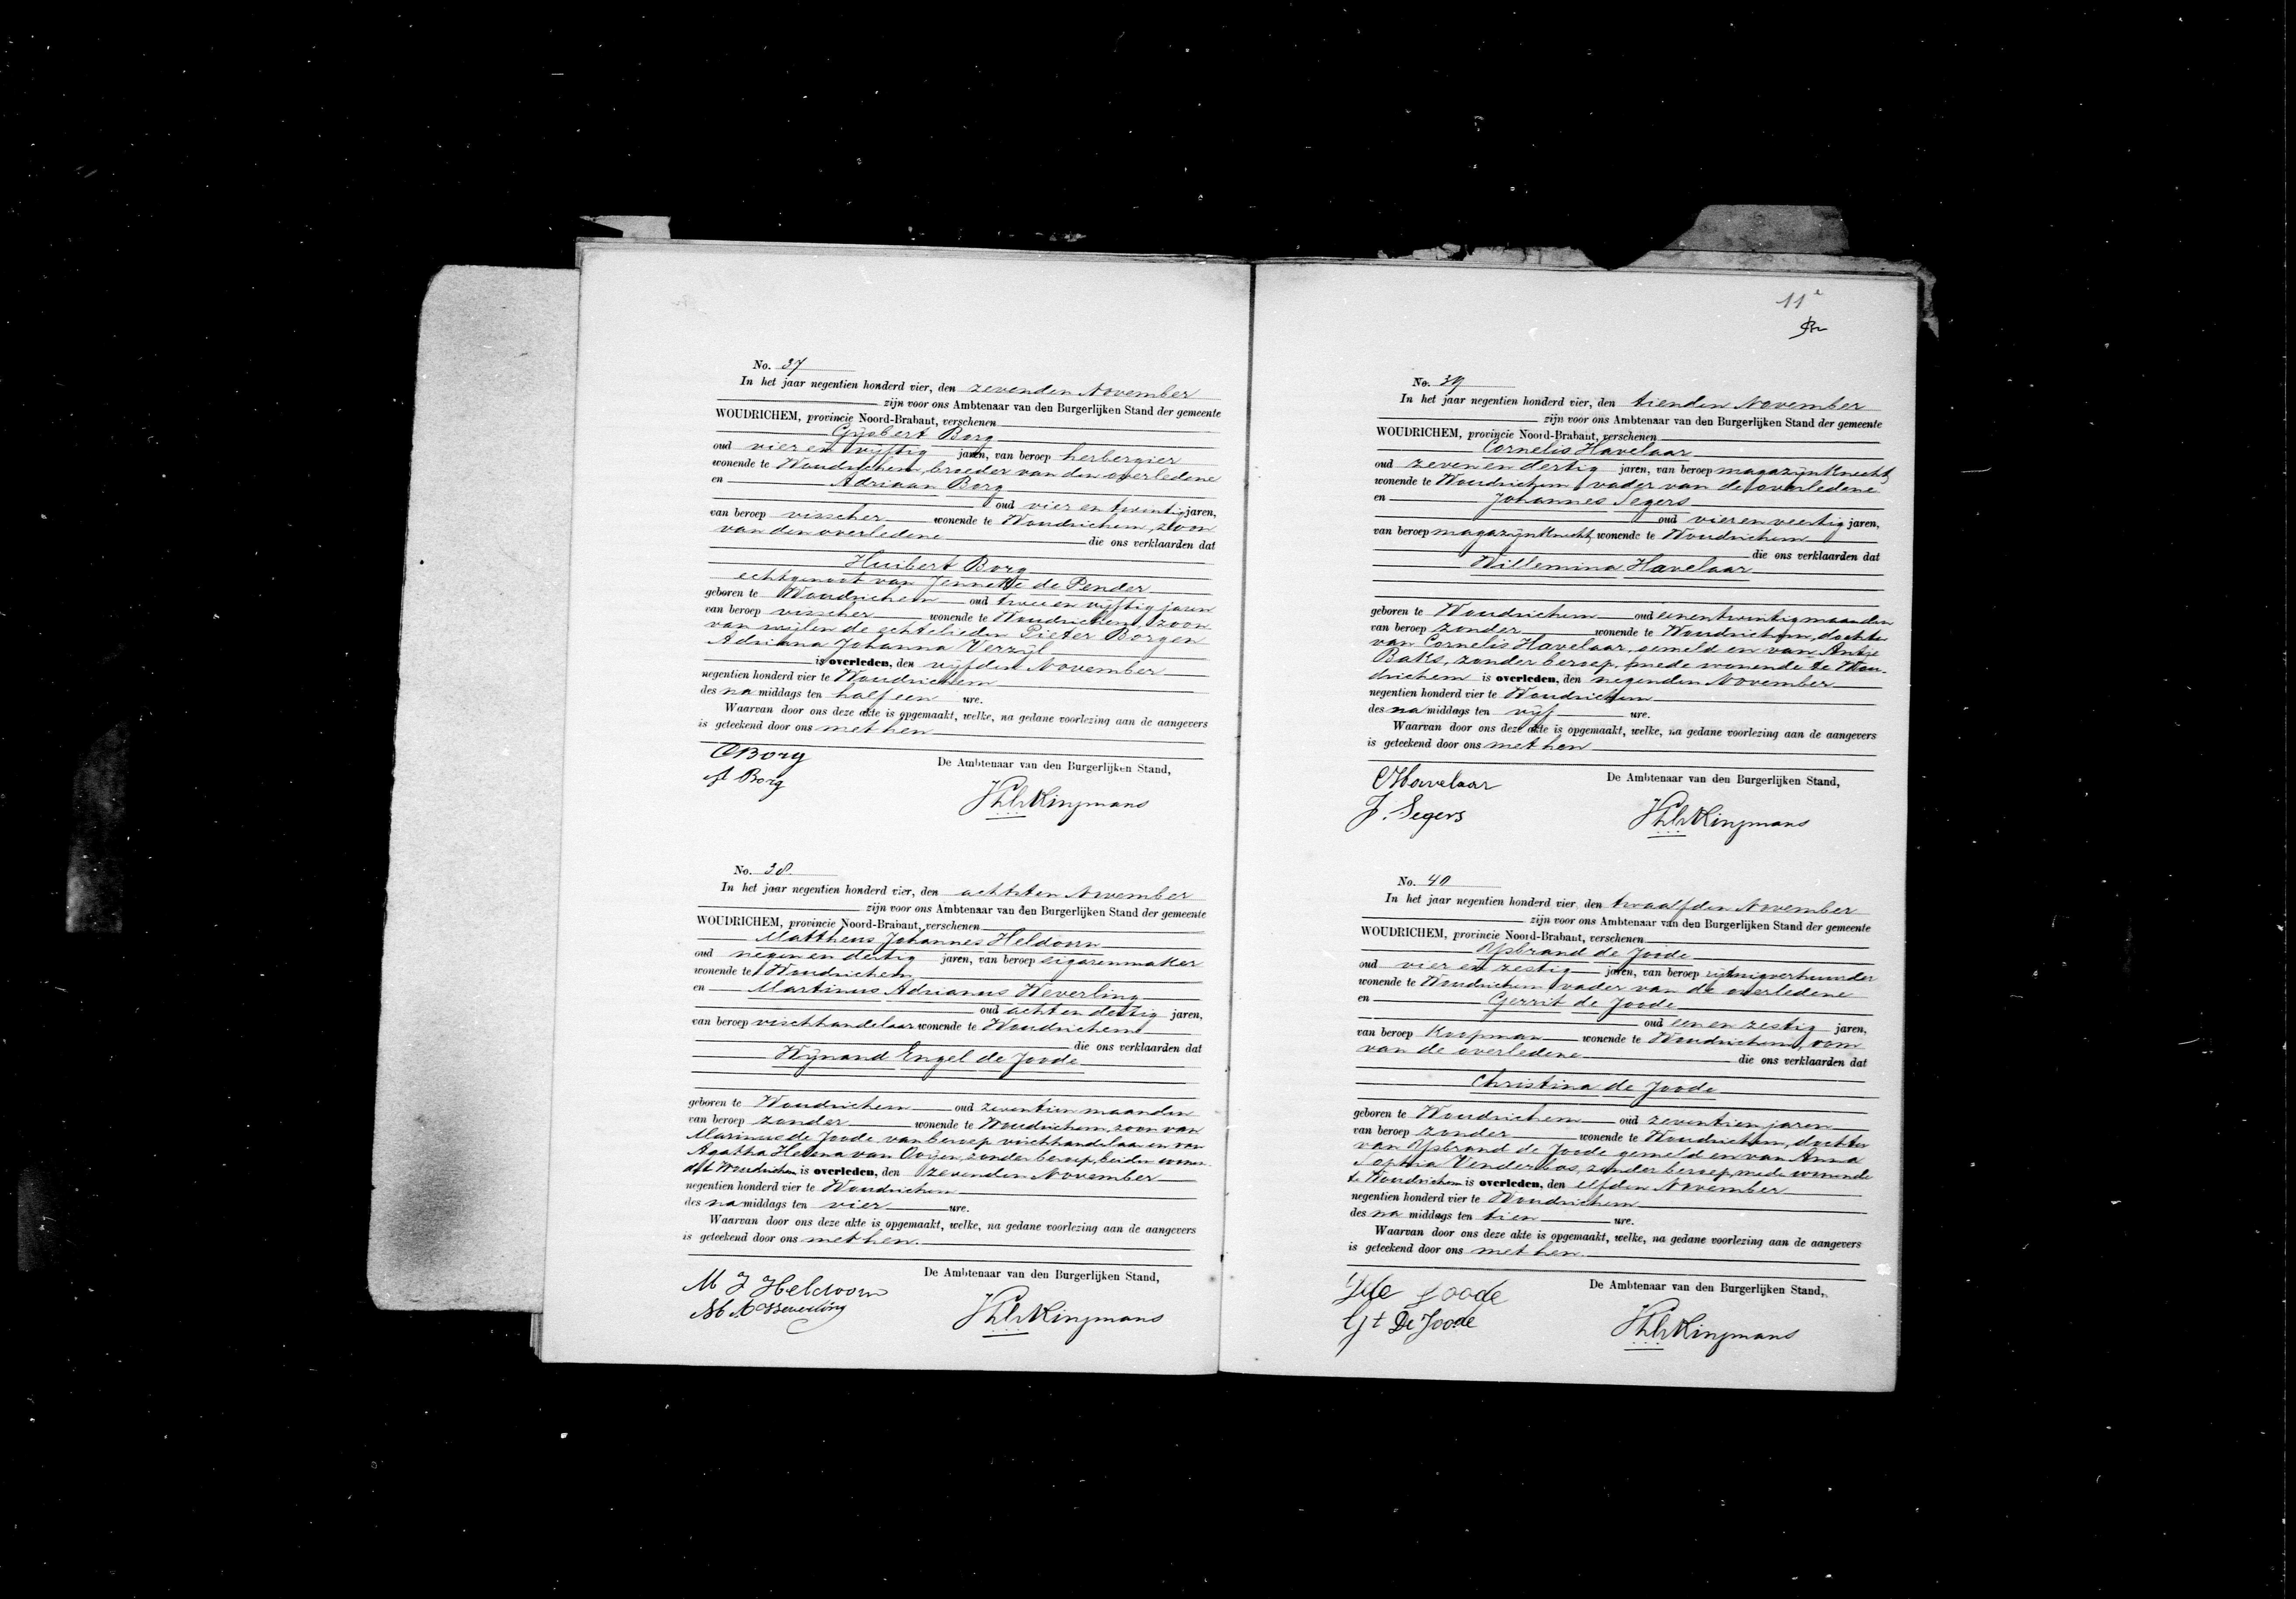 No. 37
In het jaar negentien honderd vier, den zevenden November
zijn voor ons Ambtenaar van den Burgerlijken Stand der gemeente
WOUDRICHEM, provincie Noord-Brabant, verschenen
Gijsbert Borg
oud vier en vijftig jaren, van beroep herbergier
wonende te Woudrichem, broeder van den overledene
en Adriaan Borg
oud vier en twintig jaren,
van beroep visscher wonende te Woudrichem, zoon
van den overledene die ons verklaarden dat
Huibert Borg
echtgenoot van Jennette de Pender
geboren te Woudrichem oud twee en vijftig jaren
van beroep visscher wonende te Woudrichem, zoon
van wijlen de echtelieden Pieter Borg en
Adriana Johanna Verzijl
is overleden, den vijfden November
negentien honderd vier te Woudrichem
des na middags ten half een ure.
Waarvan door ons deze akte is opgemaakt, welke, na gedane voorlezing aan de aangevers
is geteekend door ons met hen
GBorg
A Borg
De Ambtenaar van den Burgerlijken Stand,
No. 38
In het jaar negentien honderd vier, den achtsten November
zijn voor ons Ambtenaar van den Burgerlijken Stand der gemeente
WOUDRICHEM, provincie Noord-Brabant, verschenen
Mattheus Johannes Heldoorn
oud negen en dertig jaren, van beroep sigarenmaker
wonende te Woudrichem
en Martinus Adrianus Weverling
oud acht en dertig jaren,
van beroep vischhandelaar wonende te Woudrichem
die ons verklaarden dat
Wijnand Engel de Joode
geboren te Woudrichem oud zeventien maanden
van beroep zonder wonende te Woudrichem, zoon van
Marinus de Joode van beroep vischhandelaar en van
Agatha Helena van Ooijen, zonder beroep, beiden wonen-
de te Woudrichem is overleden, den zevenden November
negentien honderd vier te Woudrichem
des na middags ten vier ure.
Waarvan door ons deze akte is opgemaakt, welke, na gedane voorlezing aan de aangevers
is geteekend door ons met hen.
M J Heldoorn
M A Weverling
De Ambtenaar van den Burgerlijken Stand,
11e
No. 39
In het jaar negentien honderd vier, den tienden November
zijn voor ons Ambtenaar van den Burgerlijken Stand der gemeente
WOUDRICHEM, provincie Noord-Brabant, verschenen
Cornelis Havelaar
oud zeven en dertig jaren, van beroep magazijnknecht,
wonende te Woudrichem, vader van de overledene
en Johannes Segers
oud vier en veertig jaren,
van beroep magazijnknecht, wonende te Woudrichem
die ons verklaarden dat
Willemina Havelaar
geboren te Woudrichem oud eenentwintig maanden
van beroep zonder wonende te Woudrichem, dochter
van Cornelis Havelaar, gemeld en van Antje
Baks, zonder beroep, mede wonende te Wou-
drichem is overleden, den negenden November
negentien honderd vier te Woudrichem
des na middags ten vijf ure.
Waarvan door ons deze akte is opgemaakt, welke, na gedane voorlezing aan de aangevers
is geteekend door ons met hen
CHavelaar
J. Segers
De Ambtenaar van den Burgerlijken Stand,
No. 40
In het jaar negentien honderd vier, den twaalfden November
zijn voor ons Ambtenaar van den Burgerlijken Stand der gemeente
WOUDRICHEM, provincie Noord-Brabant, verschenen
IJsbrand de Joode
oud vier en zestig jaren, van beroep rijtuigverhuurder
wonende te Woudrichem, vader van de overledene
en Gerrit de Joode
oud een en zestig jaren,
van beroep Koopman wonende te Woudrichem, oom
van de overledene die ons verklaarden dat
Christina de Joode
geboren te Woudrichem oud zeventien jaren
van beroep zonder wonende te Woudrichem, dochter
van IJsbrand de Joode gemeld en van Anna
Sophia Venderbos, zonder beroep, mede wonende
te Woudrichem is overleden, den elfden November
negentien honderd vier te Woudrichem
des na middags ten tien ure.
Waarvan door ons deze akte is opgemaakt, welke, na gedane voorlezing aan de aangevers
is geteekend door ons met hen.
Y de Joode
Gt De Joode
De Ambtenaar van den Burgerlijken Stand,